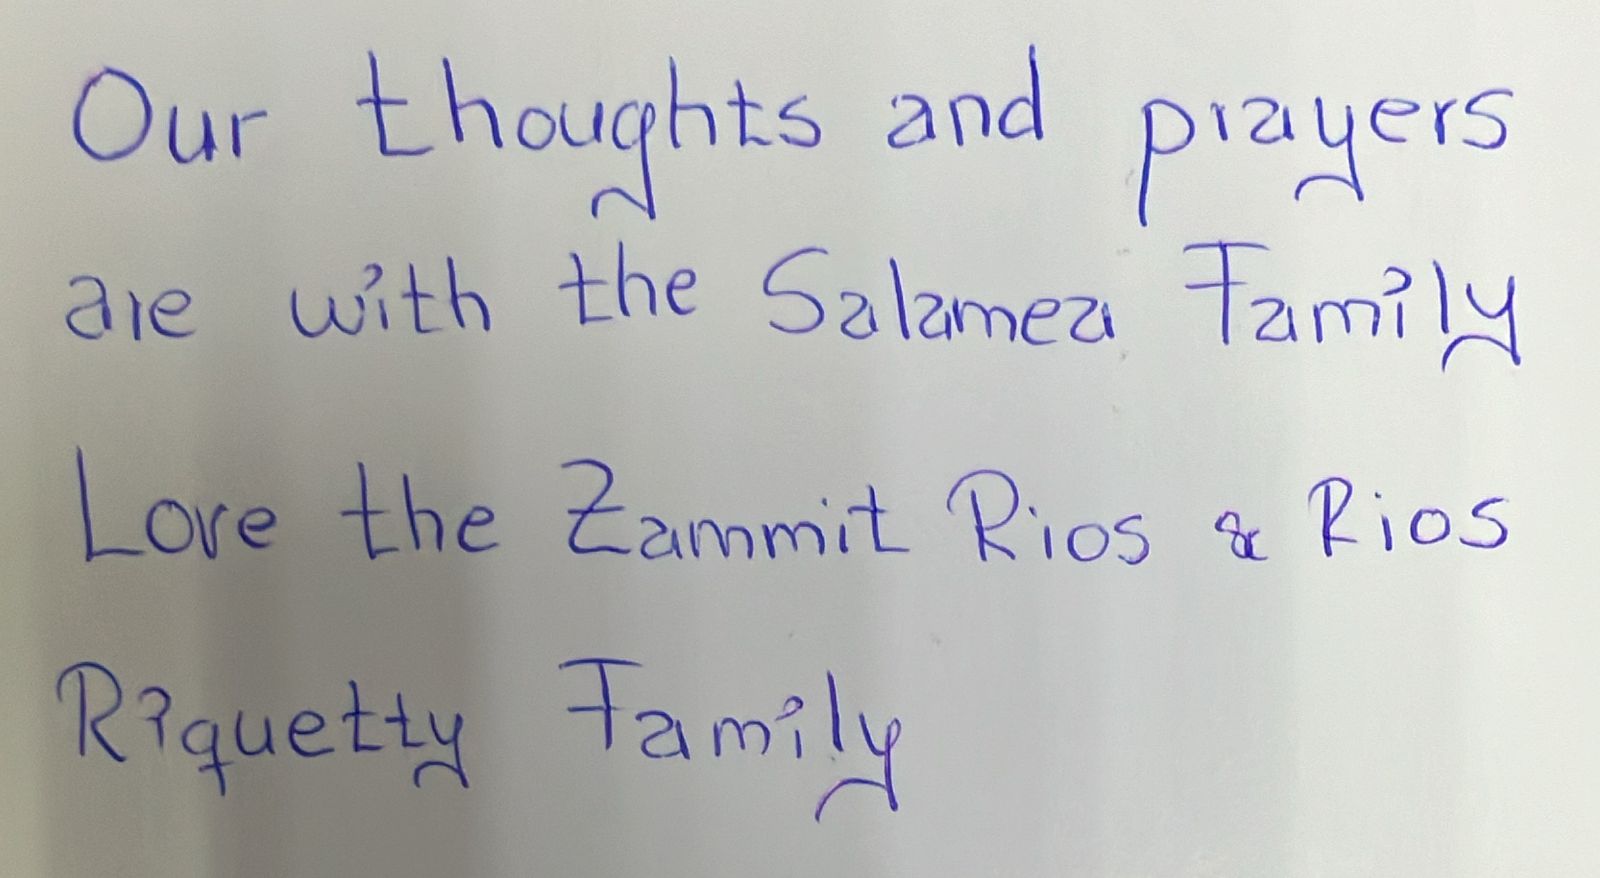 Our thoughts and prayers
are with the Salamea Family
Love the Zammit Rios & Rios
Riquetty Family